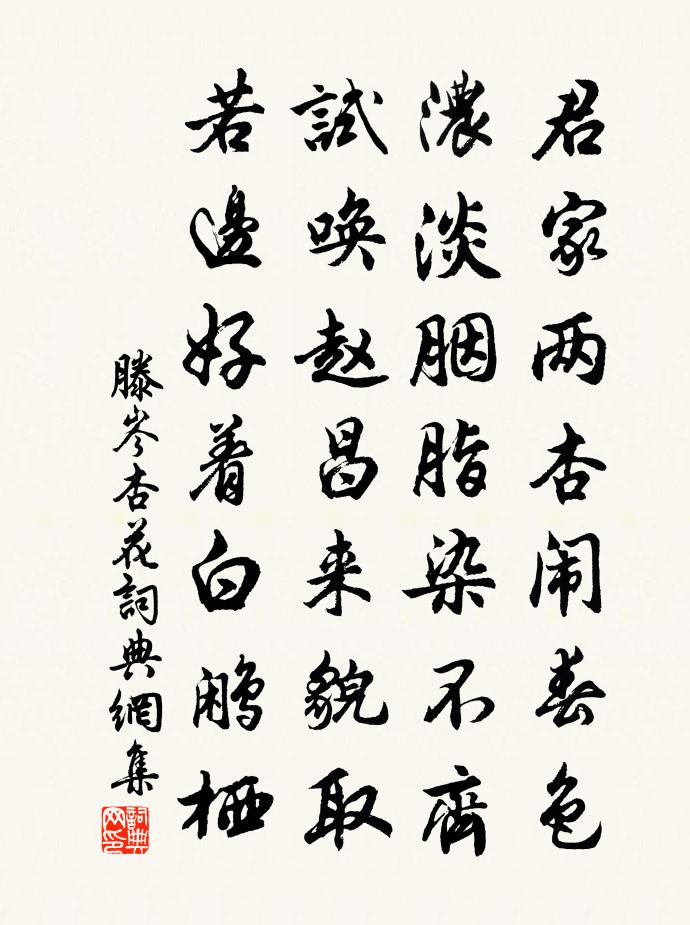 君家两杏闹春色
濃淡胭脂染不齊
試唤赵昌来貌取
若邊好着白鷴栖
滕岑杏花詞典網集
詞典网印